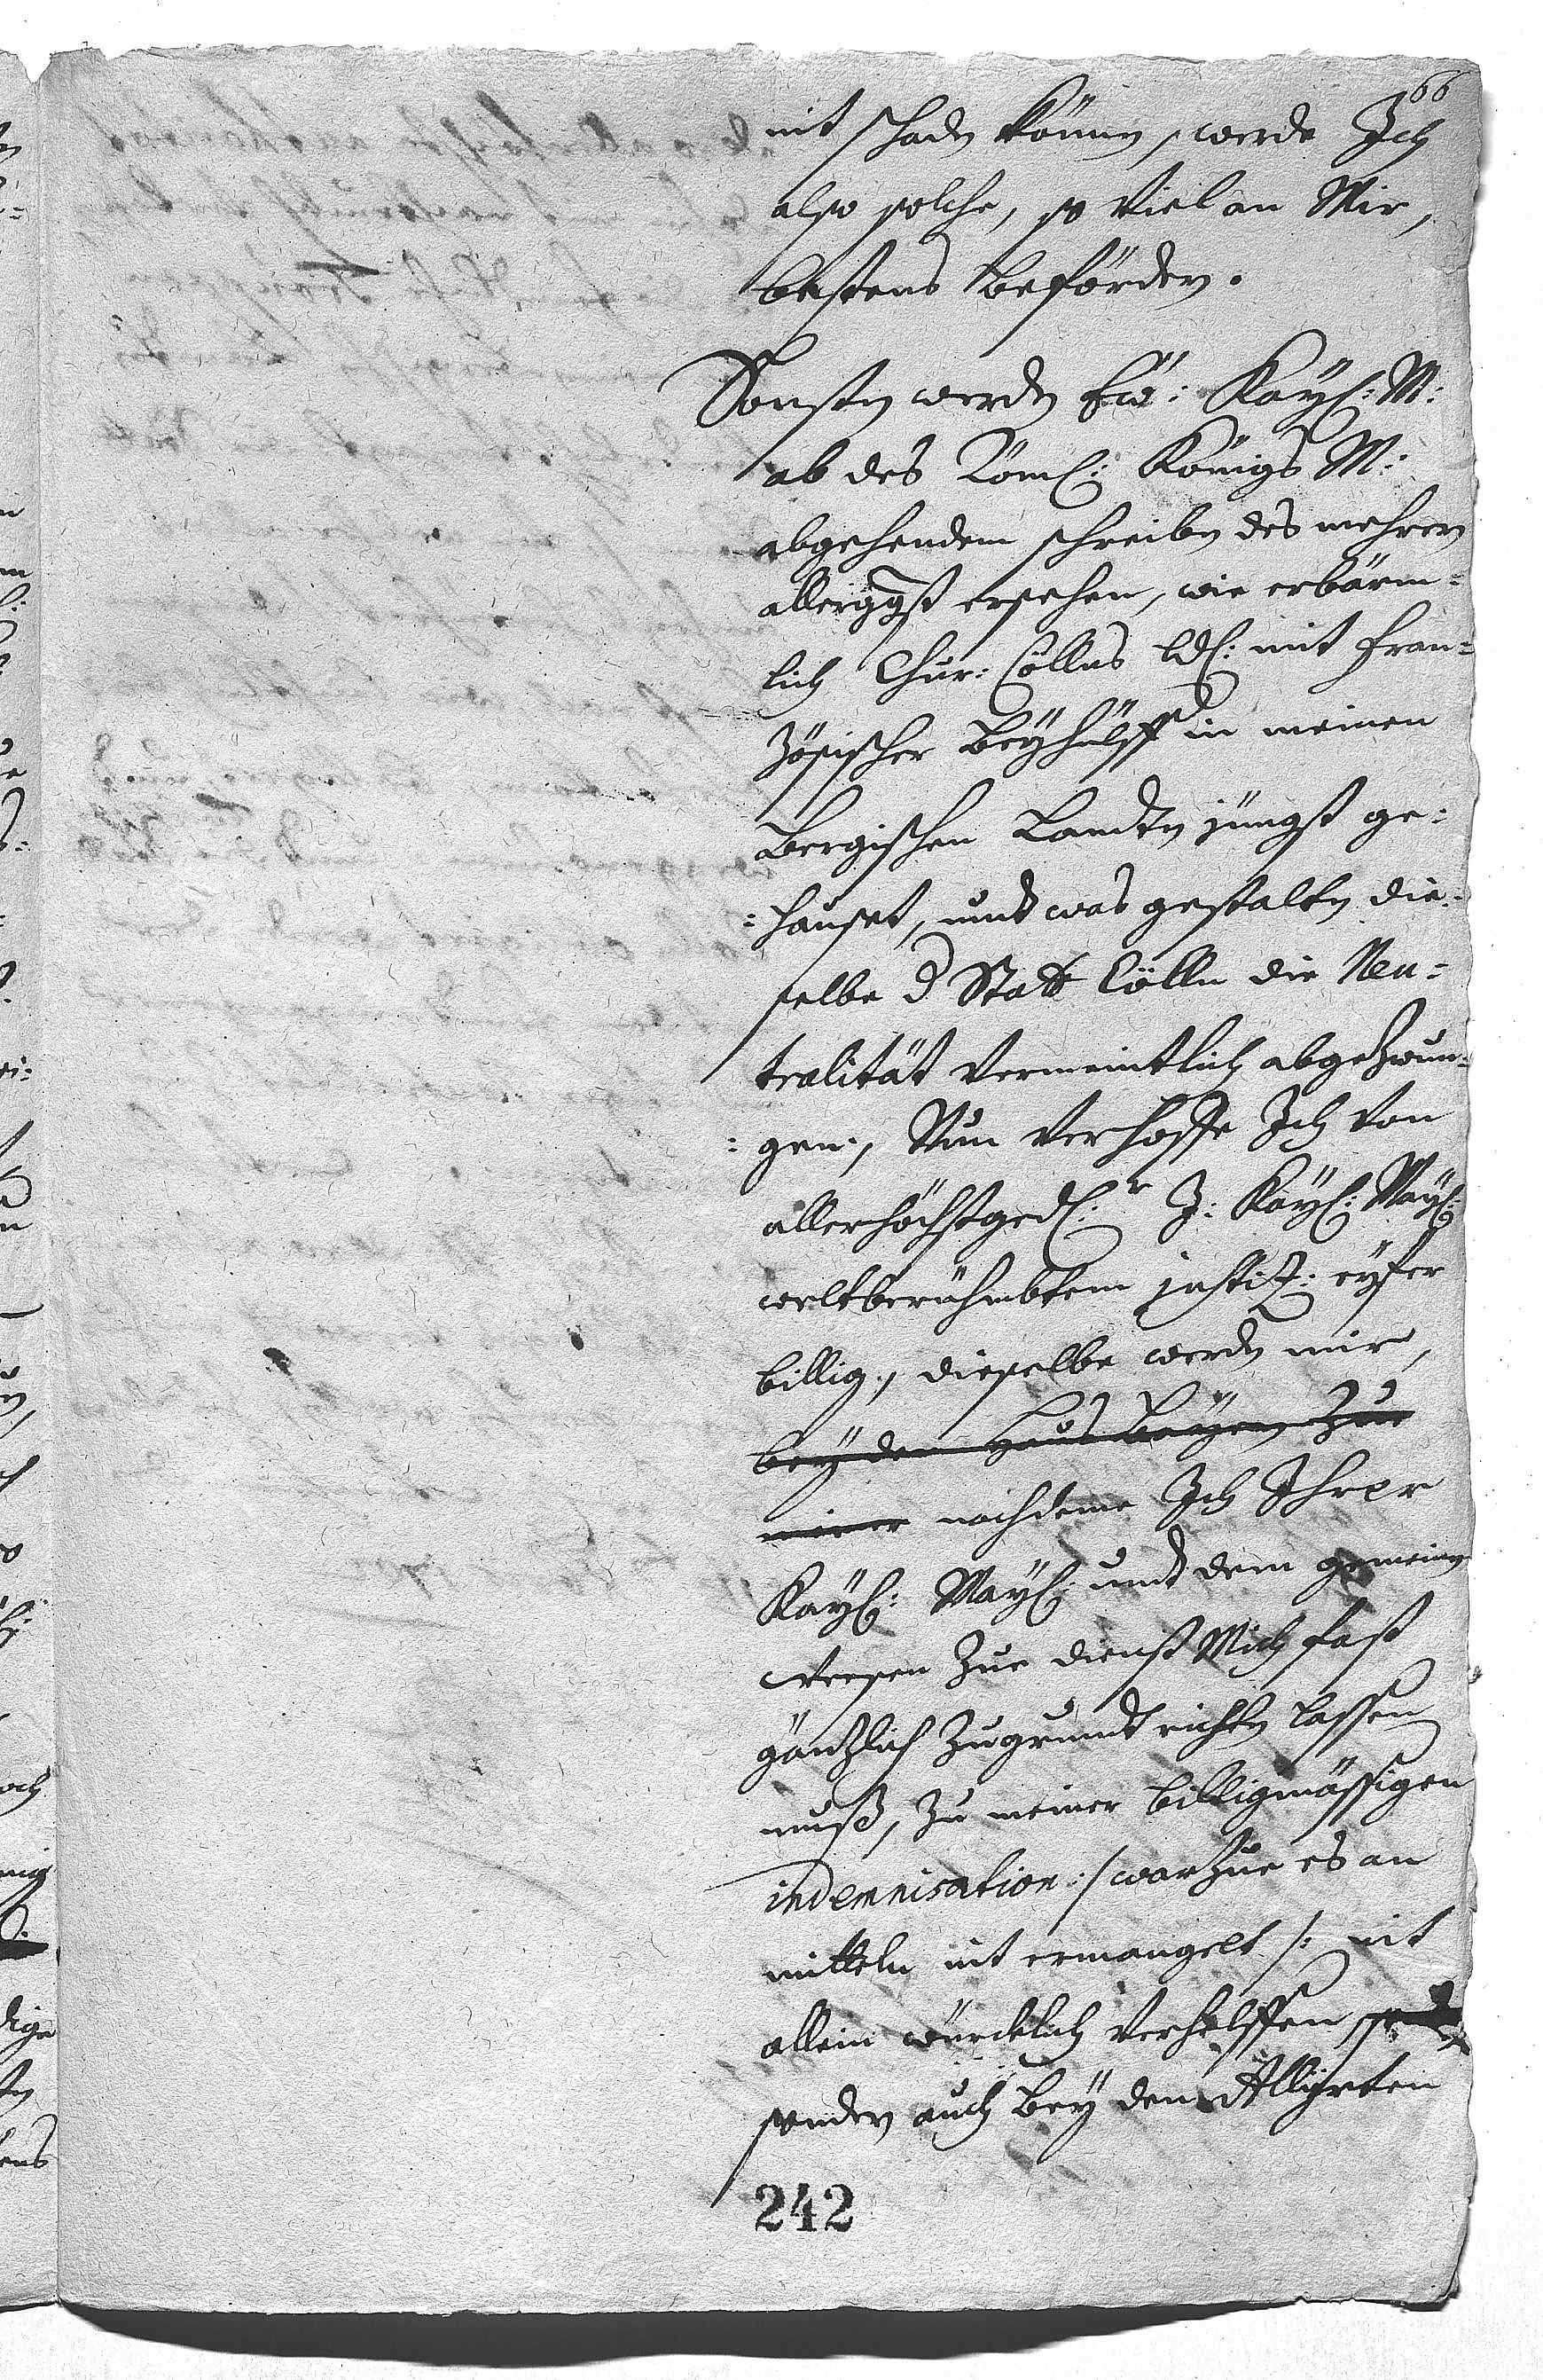 66
nit schadn können, werde Ich
also solche, so viel an Mir,
bestens befördern.
Sonstn werdn Ew: Kayl: M:
ab des Röml: Königs M:
abgehendem schreibn des mehrern
allerggst ersehen, wie erbärm-
lich Chur: Cöllns Ld: mit fran-
zösischer Beyhülff in meinen
Bergischen Landtn jüngst ge-
hauset, undt was gestaltn die-
selbe d Statt Cölln die Neu-
tralität vermeintlich abgezwun-
gen, Nun verhoffe Ich von
allerhöchstgedr J: Kayl: Mayl:
weltberühmbtem justiz: eyfer
billig, dieselbe werdn mir,
bey dem Haus Bayern zue
meiner nachdeme Ich Ihrer
Kayl: Mayl: undt dem gemeinen
weesen zue dienst Mich fast
gäntzlich zugrundt richtn lassen
muß, zu meiner billigmässigen
indemnisation :/ warzue es an
mitteln nit ermangelt /: nit
allein würcklich verhelffen
sondern auch bey den Alliirten
242